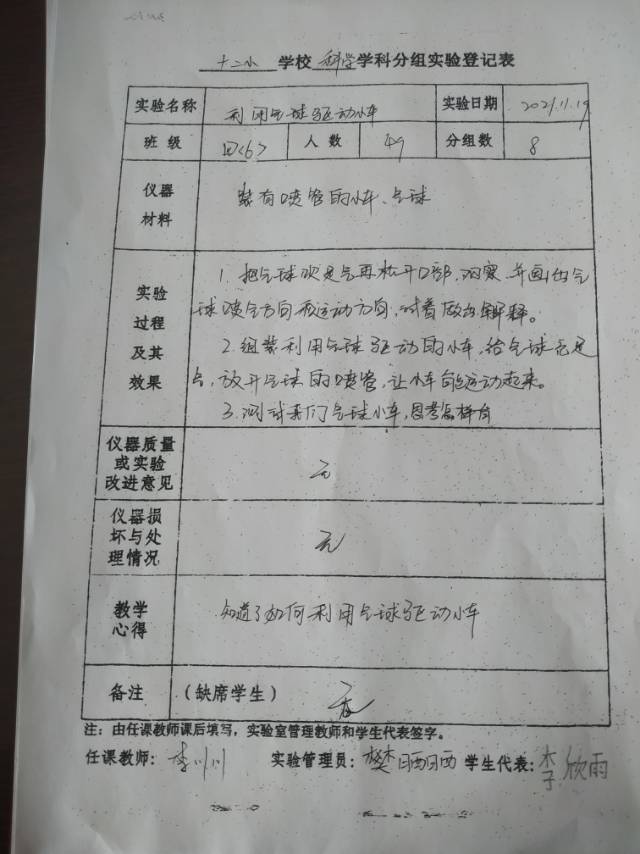 十二小 学校 科学 学科分组实验登记表
实验名称 利用气球驱动小车 实验日期 2021.11.19
班 级 四<6> 人 数 49 分组数 8
仪器材料 装有喷管的小车、气球
实验过程及其效果
1. 把气球吹足气再松开口部,观察,并画出气
球喷气方向和运动方向,试着做出解释。
2. 组装利用气球驱动的小车,给气球充足
气,放开气球的喷管,让小车能运动起来。
3. 测试我们气球小车,思考怎样有
仪器质量或实验改进意见 无
仪器损坏与处理情况 无
教学心得 知道了如何利用气球驱动小车
备注 (缺席学生) 无
注:由任课教师课后填写,实验室管理教师和学生代表签字。
任课教师:李川川 实验管理员:樊晒晒 学生代表:李欣雨